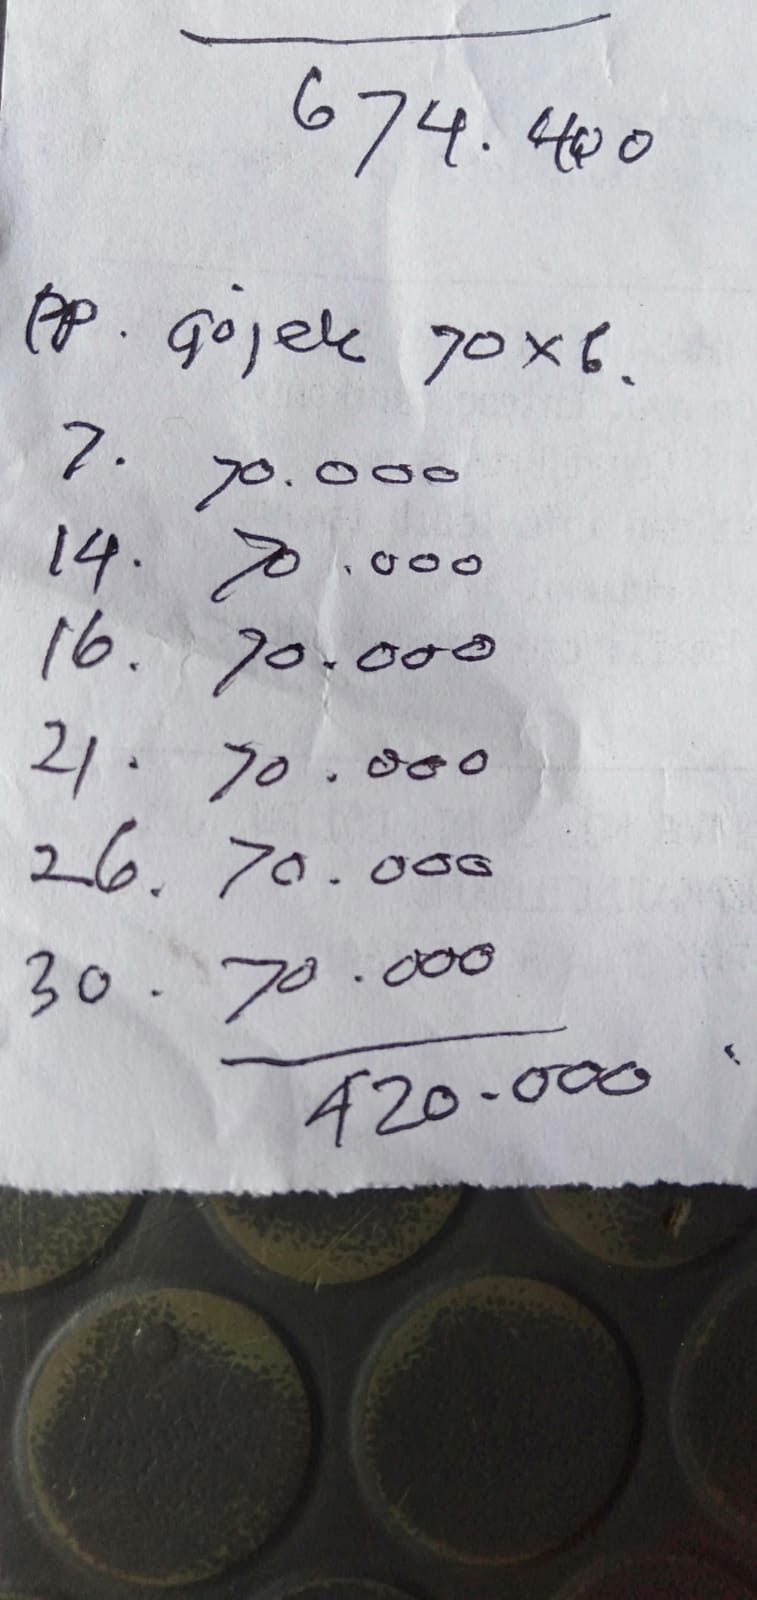 674.400
PP. Gojek 70x6.
7. 70.000
14. 70.000
16. 70.000
21. 70.000
26. 70.000
30. 70.000
420.000